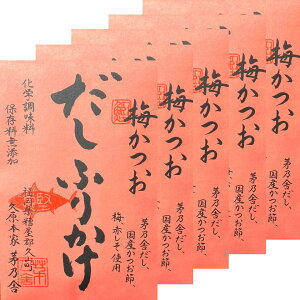 梅かつお
梅かつお
梅かつお
梅かつお
梅かつお
だしふりかけ
化学調味料
保存料無添加
茅乃舎だし、
国産かつお節、
梅、赤しそ使用
茅乃舎だし、
国産かつお節、
茅乃舎だし、
国産かつお節、
茅乃舎だし、
国産かつお節、
茅乃舎だし、
国産かつお節、
久原本家 茅乃舎